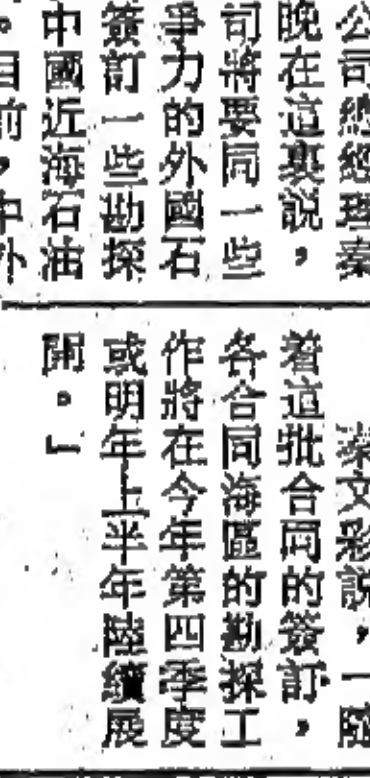 公司總經理秦
晚在這裏說，
司將要同一些
爭力的外國石
簽訂一些勘探
中國近海石油
。目前，中外
秦文彩說，一隨
着這批合同的簽訂，
各合同海區的勘探工
作將在今年第四季度
或明年上半年陸續展
開。」